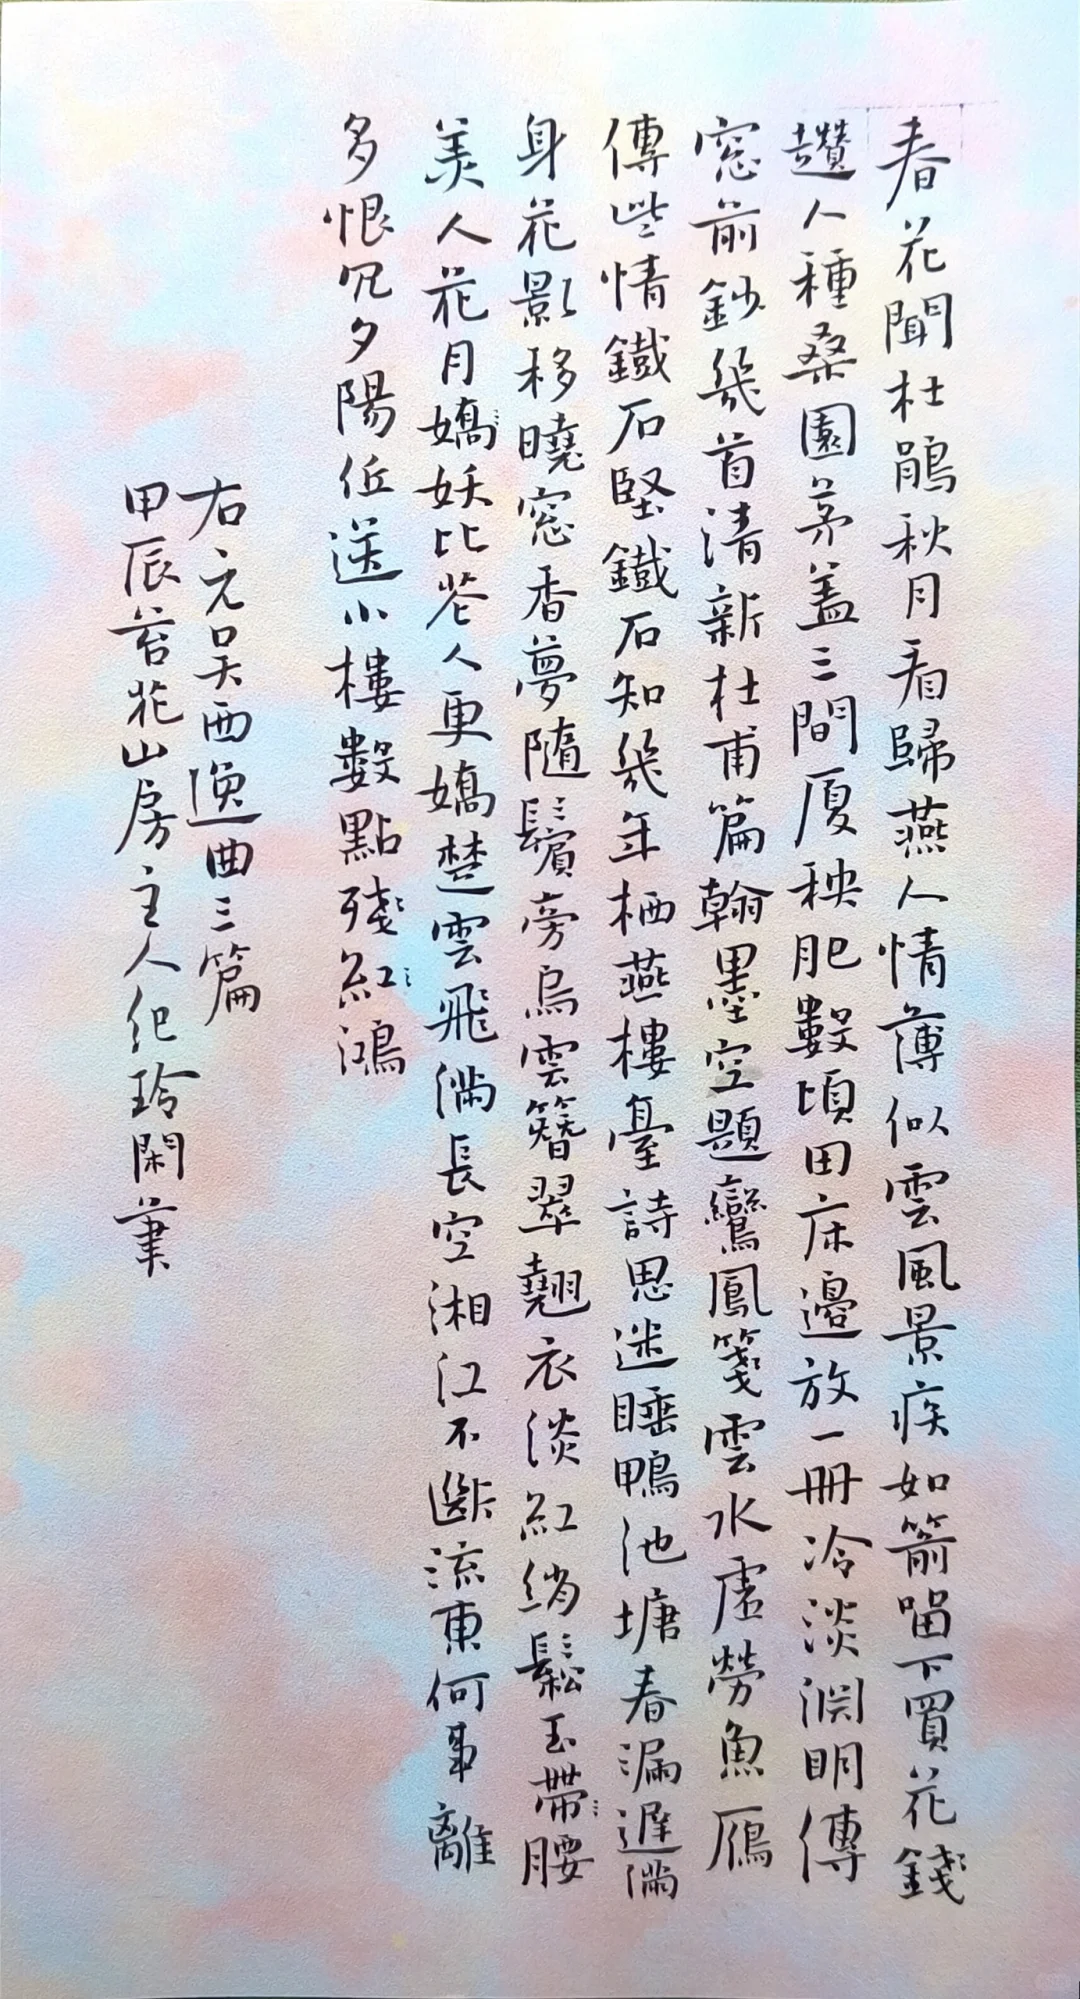 春花聞杜鵑秋月看歸燕人情薄似雲風景疾如箭留下買花錢
趲人種桑園茅蓋三間厦秧肥數頃田床邊放一冊冷淡淵明傳
窓前鈔幾首清新杜甫篇翰墨空題鸞鳳箋雲水虛勞魚鴈
傳些情鐵石堅鐵石知幾年栖燕樓臺詩思迷睡鴨池塘春漏遲滿
身花影移曉窓香夢隨鬢旁烏雲簪翠翹衣淡紅綃鬆玉帶腰
美人花月嬌妖比花人更嬌楚雲飛滿長空湘江不斷流東何事離
多恨冗夕陽低送小樓數點殘紅鴻
右元吳西逸曲三篇
甲辰苔花山房主人紀玲閑筆